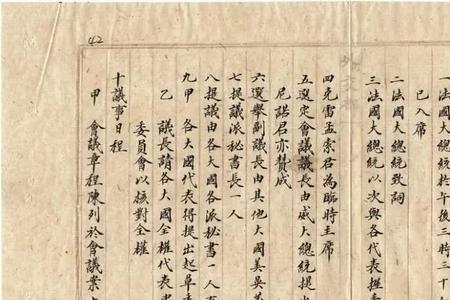 一法國大總統於午後三時三十
已入席
二法國大總統致詞
三法國大總統以次與各代表握
四克雷孟索君為臨時主席
五選定會議議長由威大總統提出
尼諾君亦贊成
六選舉副議長由其他大國美英
七提議派秘書長一人
八提議由各大國各派秘書一人
九甲 各大國代表得提出起草委
乙 議長請各大國全權代表
委員會以核對全權
十議事日程
甲 會議章程陳列於會議案
42